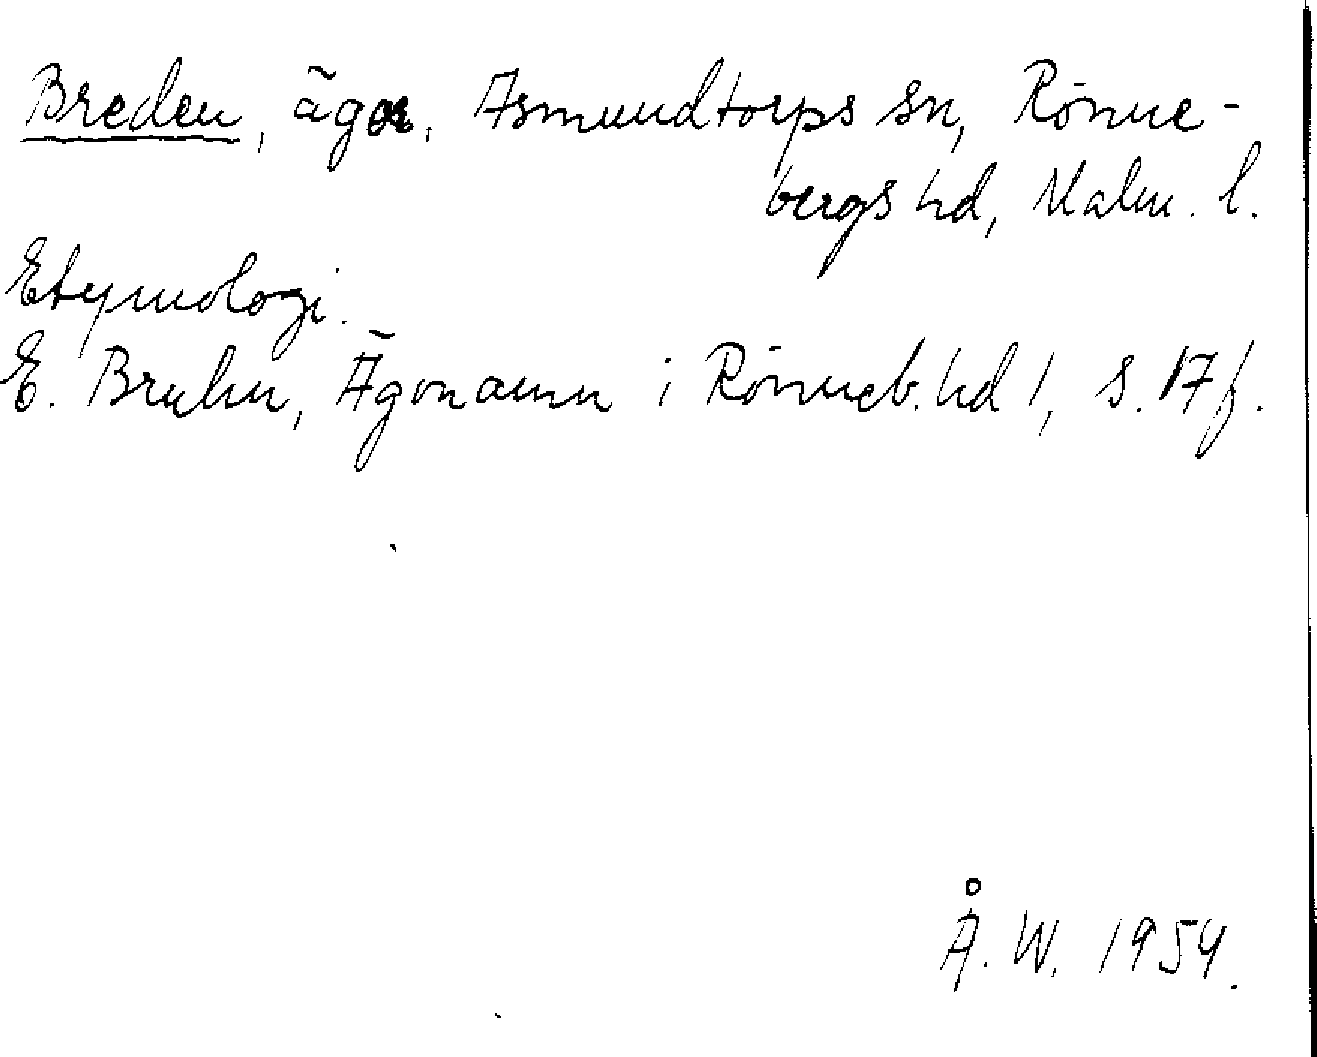 Breden, ägor, Asmundtorps sn, Rönne-
bergs hd, Malm. l.
Etymologi.
E. Bruhn, Ägonamn i Rönneb. hd 1, s. 17 f.
Å. W. 1954.